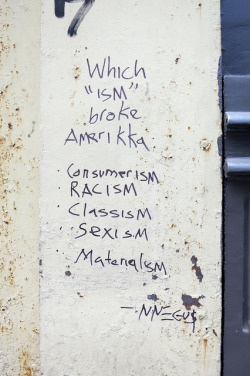 Which
"ISM"
broke
Amerikka
· ConsumerISM
· RACISM
· ClassISM
· SexISM
· MaterialISM
- NNEGUS